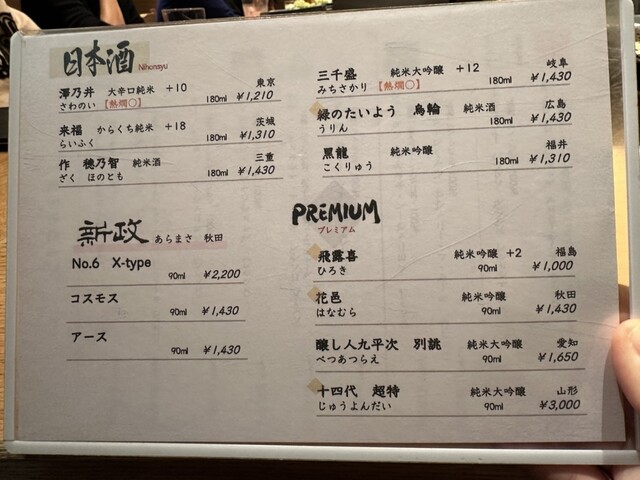 日本酒 Nihonsyu
澤乃井 大辛口純米 +10 東京
さわのい 【熱燗〇】 180ml ¥1,210
来福 からくち純米 +18 茨城
らいふく 180ml ¥1,310
作 穂乃智 純米酒 三重
ざく ほのとも 180ml ¥1,430
新政 あらまさ 秋田
No.6 X-type
90ml ¥2,200
コスモス
90ml ¥1,430
アース
90ml ¥1,430
三千盛 純米大吟醸 +12 岐阜
みちさかり 【熱燗〇】 180ml ¥1,430
緑のたいよう 烏輪 純米酒 広島
うりん 180ml ¥1,430
黒龍 純米吟醸 福井
こくりゅう 180ml ¥1,310
PREMIUM
プレミアム
飛露喜 純米吟醸 +2 福島
ひろき 90ml ¥1,000
花邑 純米吟醸 秋田
はなむら 90ml ¥1,430
醸し人九平次 別誂 純米大吟醸 愛知
べつあつらえ 90ml ¥1,650
十四代 超特 純米大吟醸 山形
じゅうよんだい 90ml ¥3,000